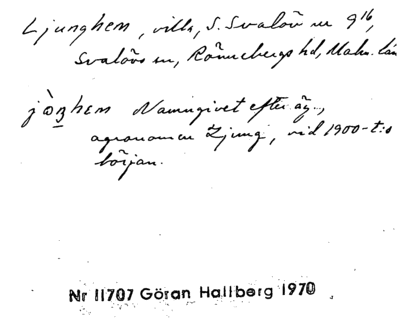 Ljunghem, villa, S. Svalöv nr 9¹⁶,
Svalövs sn, Rönnebergs hd, Malm. län
jòŋhem Namngivet efter äg.,
agronomen Ljung, vid 1900-t:s
början.
Nr 11707 Göran Hallberg 1970